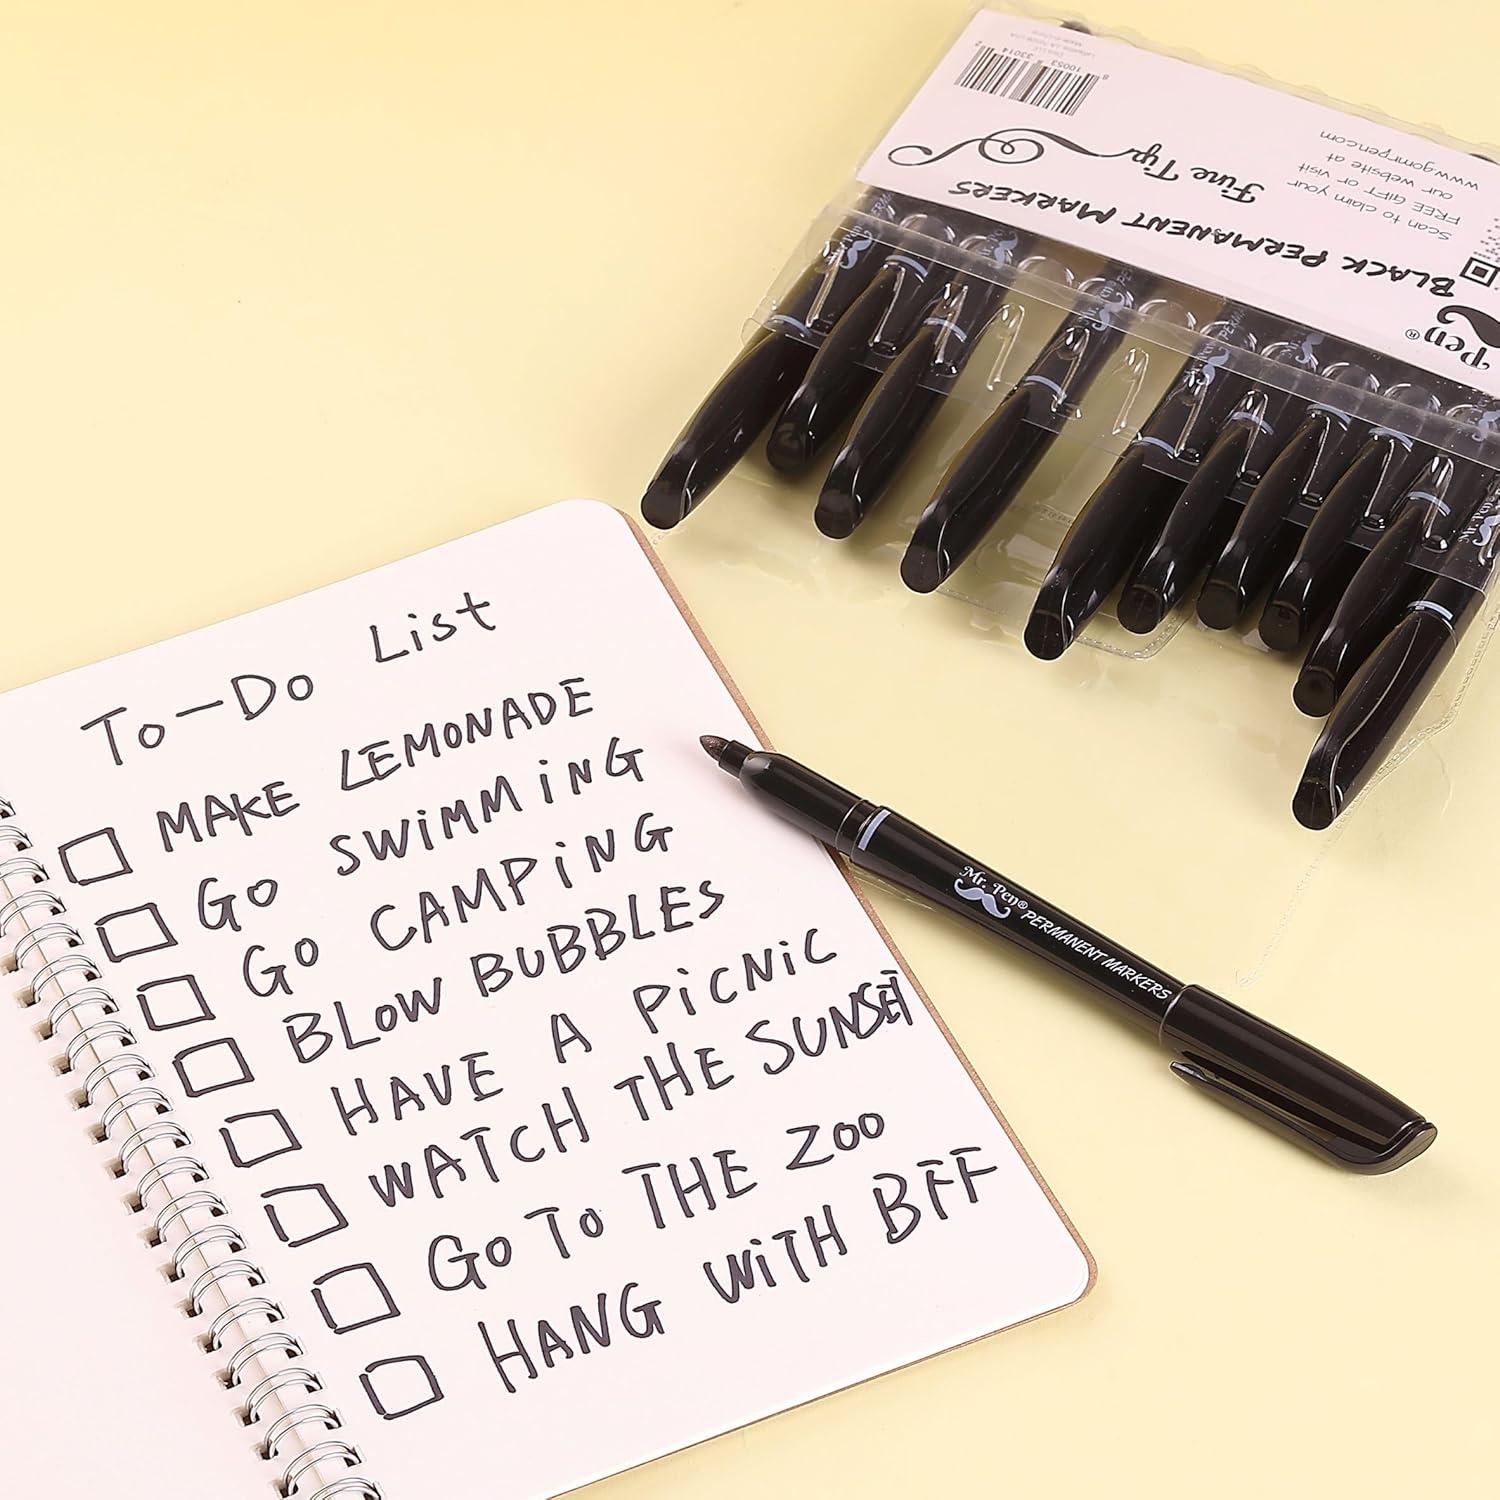 To-Do List
MAKE LEMONADE
GO SWiMMiNG
GO CAMPiNG
BLOW BUBBLES
HAVE A PiCNiC
WATCH THE SUNSET
GO TO THE ZOO
HANG WiTH BFF
Mr. Pen® PERMANENT MARKERS
Pen®
BLACK PERMANENT MARKERS
Fine Tip
Scan to claim your
FREE GIFT or visit
our website at
www.gomrpen.com
8 10053 33014 2
Mr. Pen
Mr. Pen
PERMA
Mr. Pen
Mr. Pen